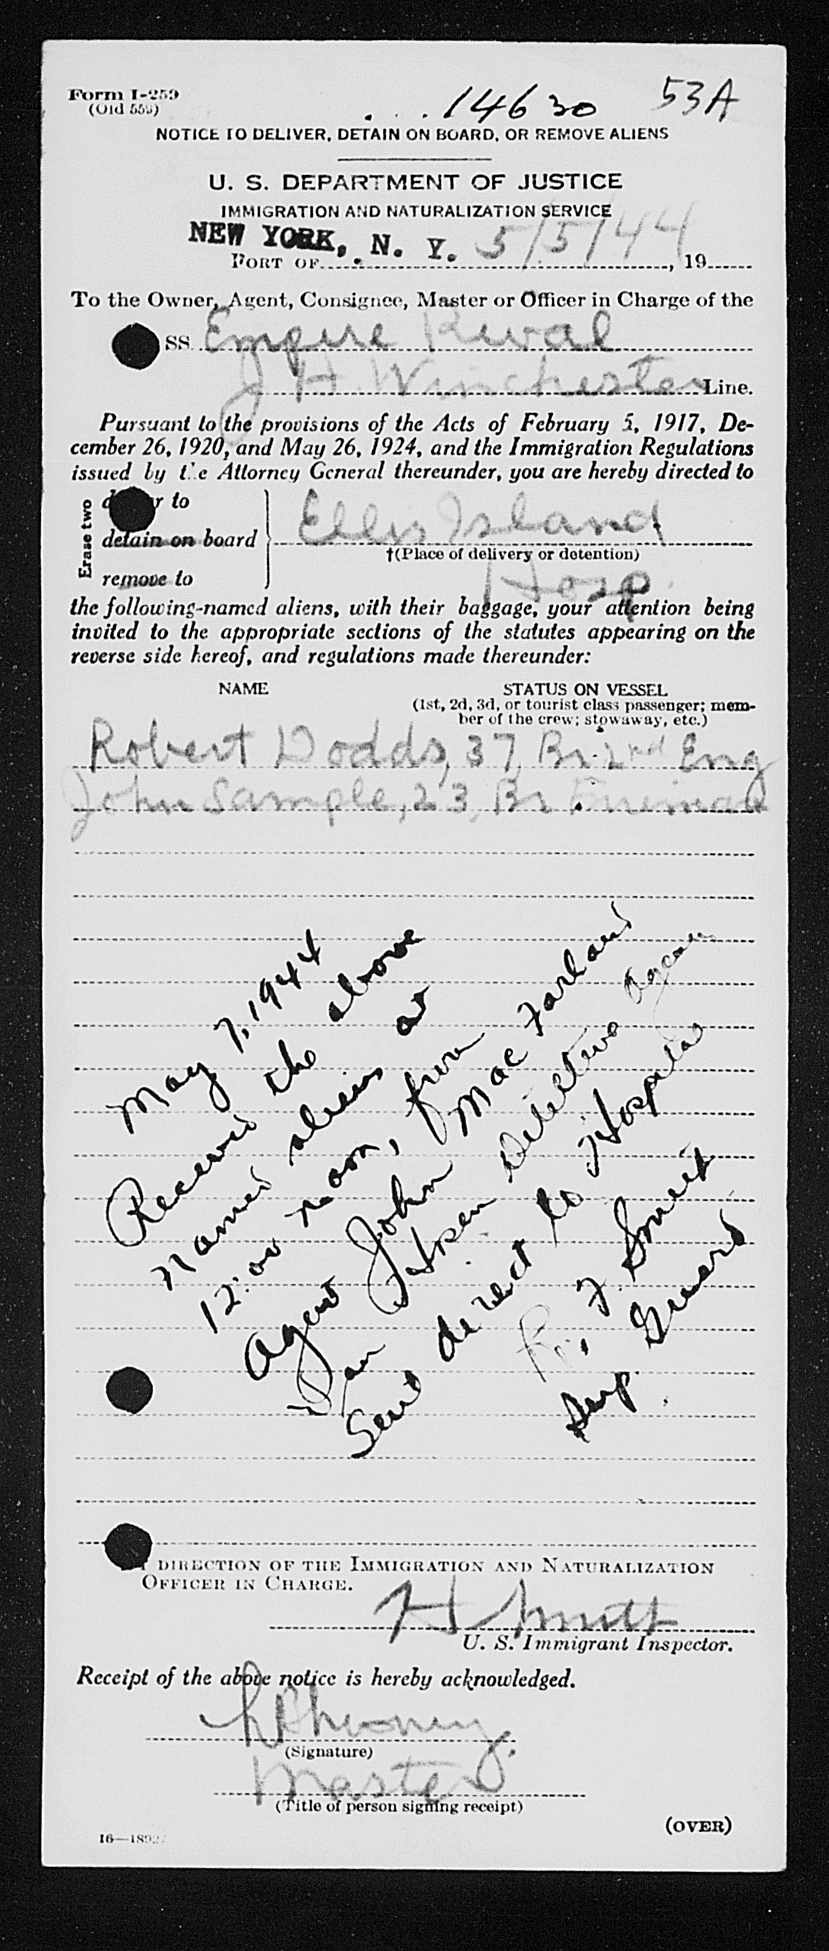 Form I-259
(Old 559)
14630 53A
NOTICE TO DELIVER, DETAIN ON BOARD, OR REMOVE ALIENS
U. S. DEPARTMENT OF JUSTICE
IMMIGRATION AND NATURALIZATION SERVICE
NEW YORK, N. Y. 5/5/44
PORT OF , 19
To the Owner, Agent, Consignee, Master or Officer in Charge of the
SS. Empire Rival
J H Winchester Line.
Pursuant to the provisions of the Acts of February 5, 1917, De-
cember 26, 1920, and May 26, 1924, and the Immigration Regulations
issued by the Attorney General thereunder, you are hereby directed to
Erase two
to
detain on board
remove to
Ellis Island
†(Place of delivery or detention)
Hosp.
the following-named aliens, with their baggage, your attention being
invited to the appropriate sections of the statutes appearing on the
reverse side hereof, and regulations made thereunder:
NAME STATUS ON VESSEL
(1st, 2d, 3d, or tourist class passenger; mem-
ber of the crew; stowaway, etc.)
Robert Dodds, 37, Br. 2nd Eng
John Sample, 23, Br Fireman
May 7, 1944
Received the above
named aliens at
12:00 noon, from
Agent John MacFarland
Detective Agen
Sent direct to Hospital
R. F. Smeit
Sup. Guard
DIRECTION OF THE IMMIGRATION AND NATURALIZATION
OFFICER IN CHARGE.
H Smitt
U. S. Immigrant Inspector.
Receipt of the above notice is hereby acknowledged.
(Signature)
Master
(Title of person signing receipt)
(OVER)